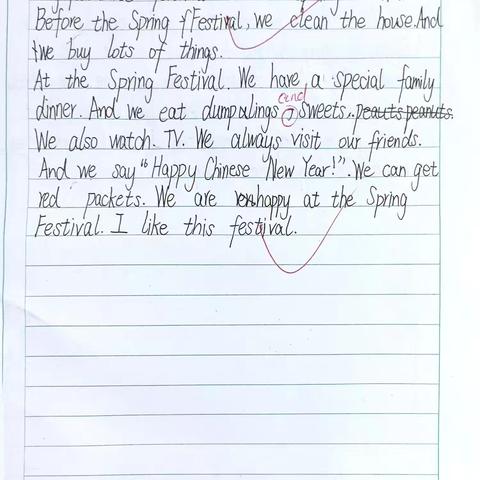 Before the Spring Festival, we clean the house. And
we buy lots of things.
At the Spring Festival. We have a special family
dinner. And we eat dumpalings and sweets. peauts peanuts.
We also watch. TV. We always visit our friends.
And we say "Happy Chinese New Year!". We can get
red packets. We are happy at the Spring
Festival. I like this festival.